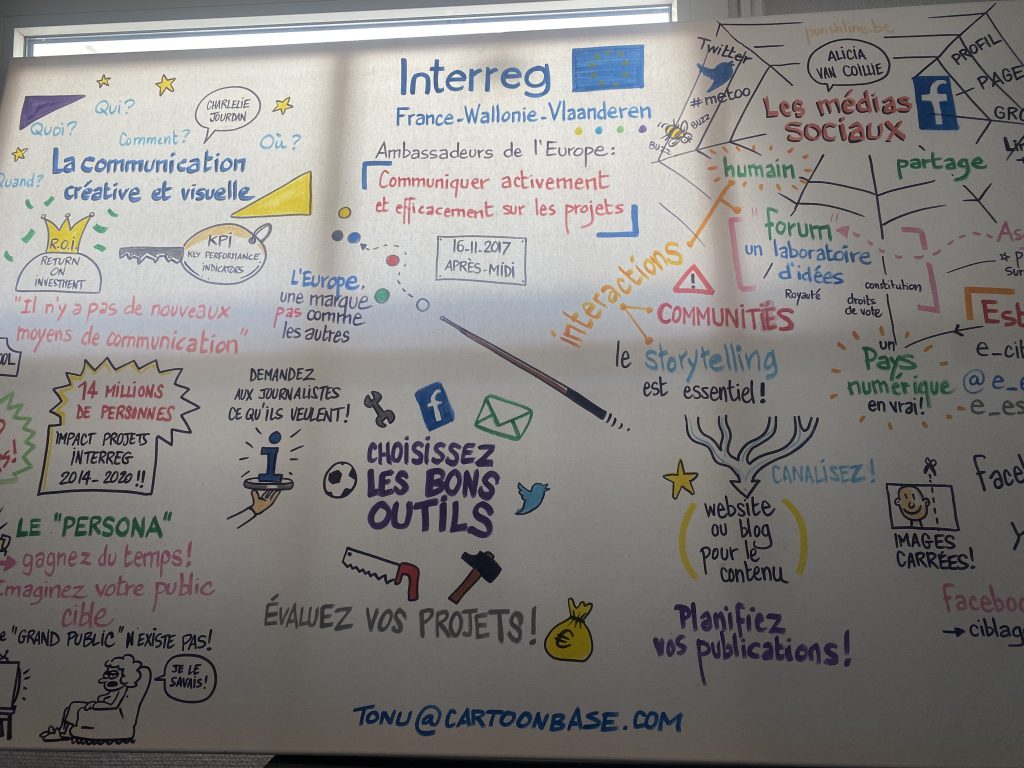 Qui?
Quoi?
Comment?
Où?
Quand?
CHARLELIE
JOURDAN
La communication
créative et visuelle
R.O.I.
RETURN
ON
INVESTMENT
KPI
KEY PERFORMANCE
INDICATORS
"Il n'y a pas de nouveaux
moyens de communication"
14 MILLIONS
DE PERSONNES
IMPACT PROJETS
INTERREG
2014-2020!!
LE "PERSONA"
gagnez du temps!
Imaginez votre public
cible
"GRAND PUBLIC" N'EXISTE PAS!
JE LE
SAVAIS!
Interreg
France-Wallonie-Vlaanderen
Ambassadeurs de l'Europe:
Communiquer activement
et efficacement sur les projets
16-11-2017
APRÈS-MIDI
L'Europe,
une marque
pas comme
les autres
DEMANDEZ
AUX JOURNALISTES
CE QU'ILS VEULENT!
i
f
CHOISISSEZ
LES BONS
OUTILS
ÉVALUEZ VOS PROJETS!
€
TONU@CARTOONBASE.COM
punchline.be
Twitter
#metoo
BUZZ
BUZZ
ALICIA
VAN COILLIE
Les médias
sociaux
f
PROFIL
PAGE
GRO
humain
partage
"forum"
un laboratoire
d'idées
Royauté
constitution
droits
de vote
interactions
!
COMMUNITIES
le storytelling
est essentiel!
un
Pays
numérique
en vrai!
Est
e_cib
@e_e
e_es
CANALISEZ!
website
ou blog
pour le
contenu
IMAGES
CARRÉES!
Planifiez
vos publications!
Faceb
Facebo
ciblag